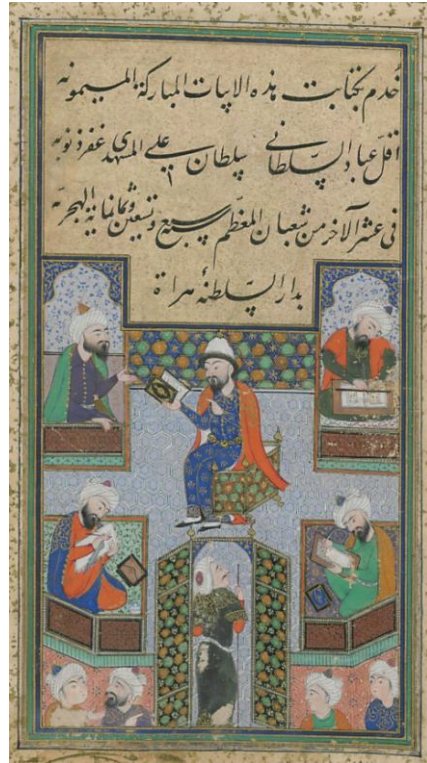 خدم بکتابت هذه الابیات المبارکة المیمونه
اقل عباد السلطانی سلطان علی المشهدی غفر ذنوبه
فی عشر الآخر من شعبان المعظم سبع وتسعین وثمانمایة الهجریة
بدار السلطنهٔ هراة